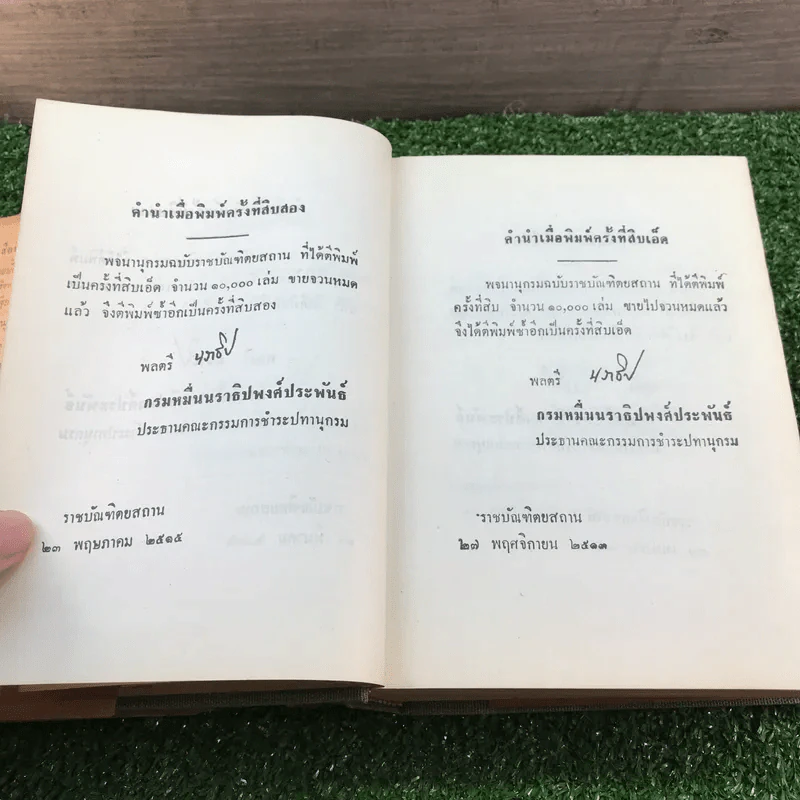 คำนำเมื่อพิมพ์ครั้งที่สิบสอง
พจนานุกรมฉบับราชบัณฑิตยสถาน ที่ได้ตีพิมพ์
เป็นครั้งที่สิบเอ็ด จำนวน ๑๐,๐๐๐ เล่ม ขายจวนหมด
แล้ว จึงตีพิมพ์ซ้ำอีกเป็นครั้งที่สิบสอง
พลตรี นราธิป
กรมหมื่นนราธิปพงศ์ประพันธ์
ประธานคณะกรรมการชำระปทานุกรม
ราชบัณฑิตยสถาน
๒๓ พฤษภาคม ๒๕๑๕
คำนำเมื่อพิมพ์ครั้งที่สิบเอ็ด
พจนานุกรมฉบับราชบัณฑิตยสถาน ที่ได้ตีพิมพ์
ครั้งที่สิบ จำนวน ๑๐,๐๐๐ เล่ม ขายไปจวนหมดแล้ว
จึงได้ตีพิมพ์ซ้ำอีกเป็นครั้งที่สิบเอ็ด
พลตรี นราธิป
กรมหมื่นนราธิปพงศ์ประพันธ์
ประธานคณะกรรมการชำระปทานุกรม
ราชบัณฑิตยสถาน
๒๗ พฤศจิกายน ๒๕๑๓